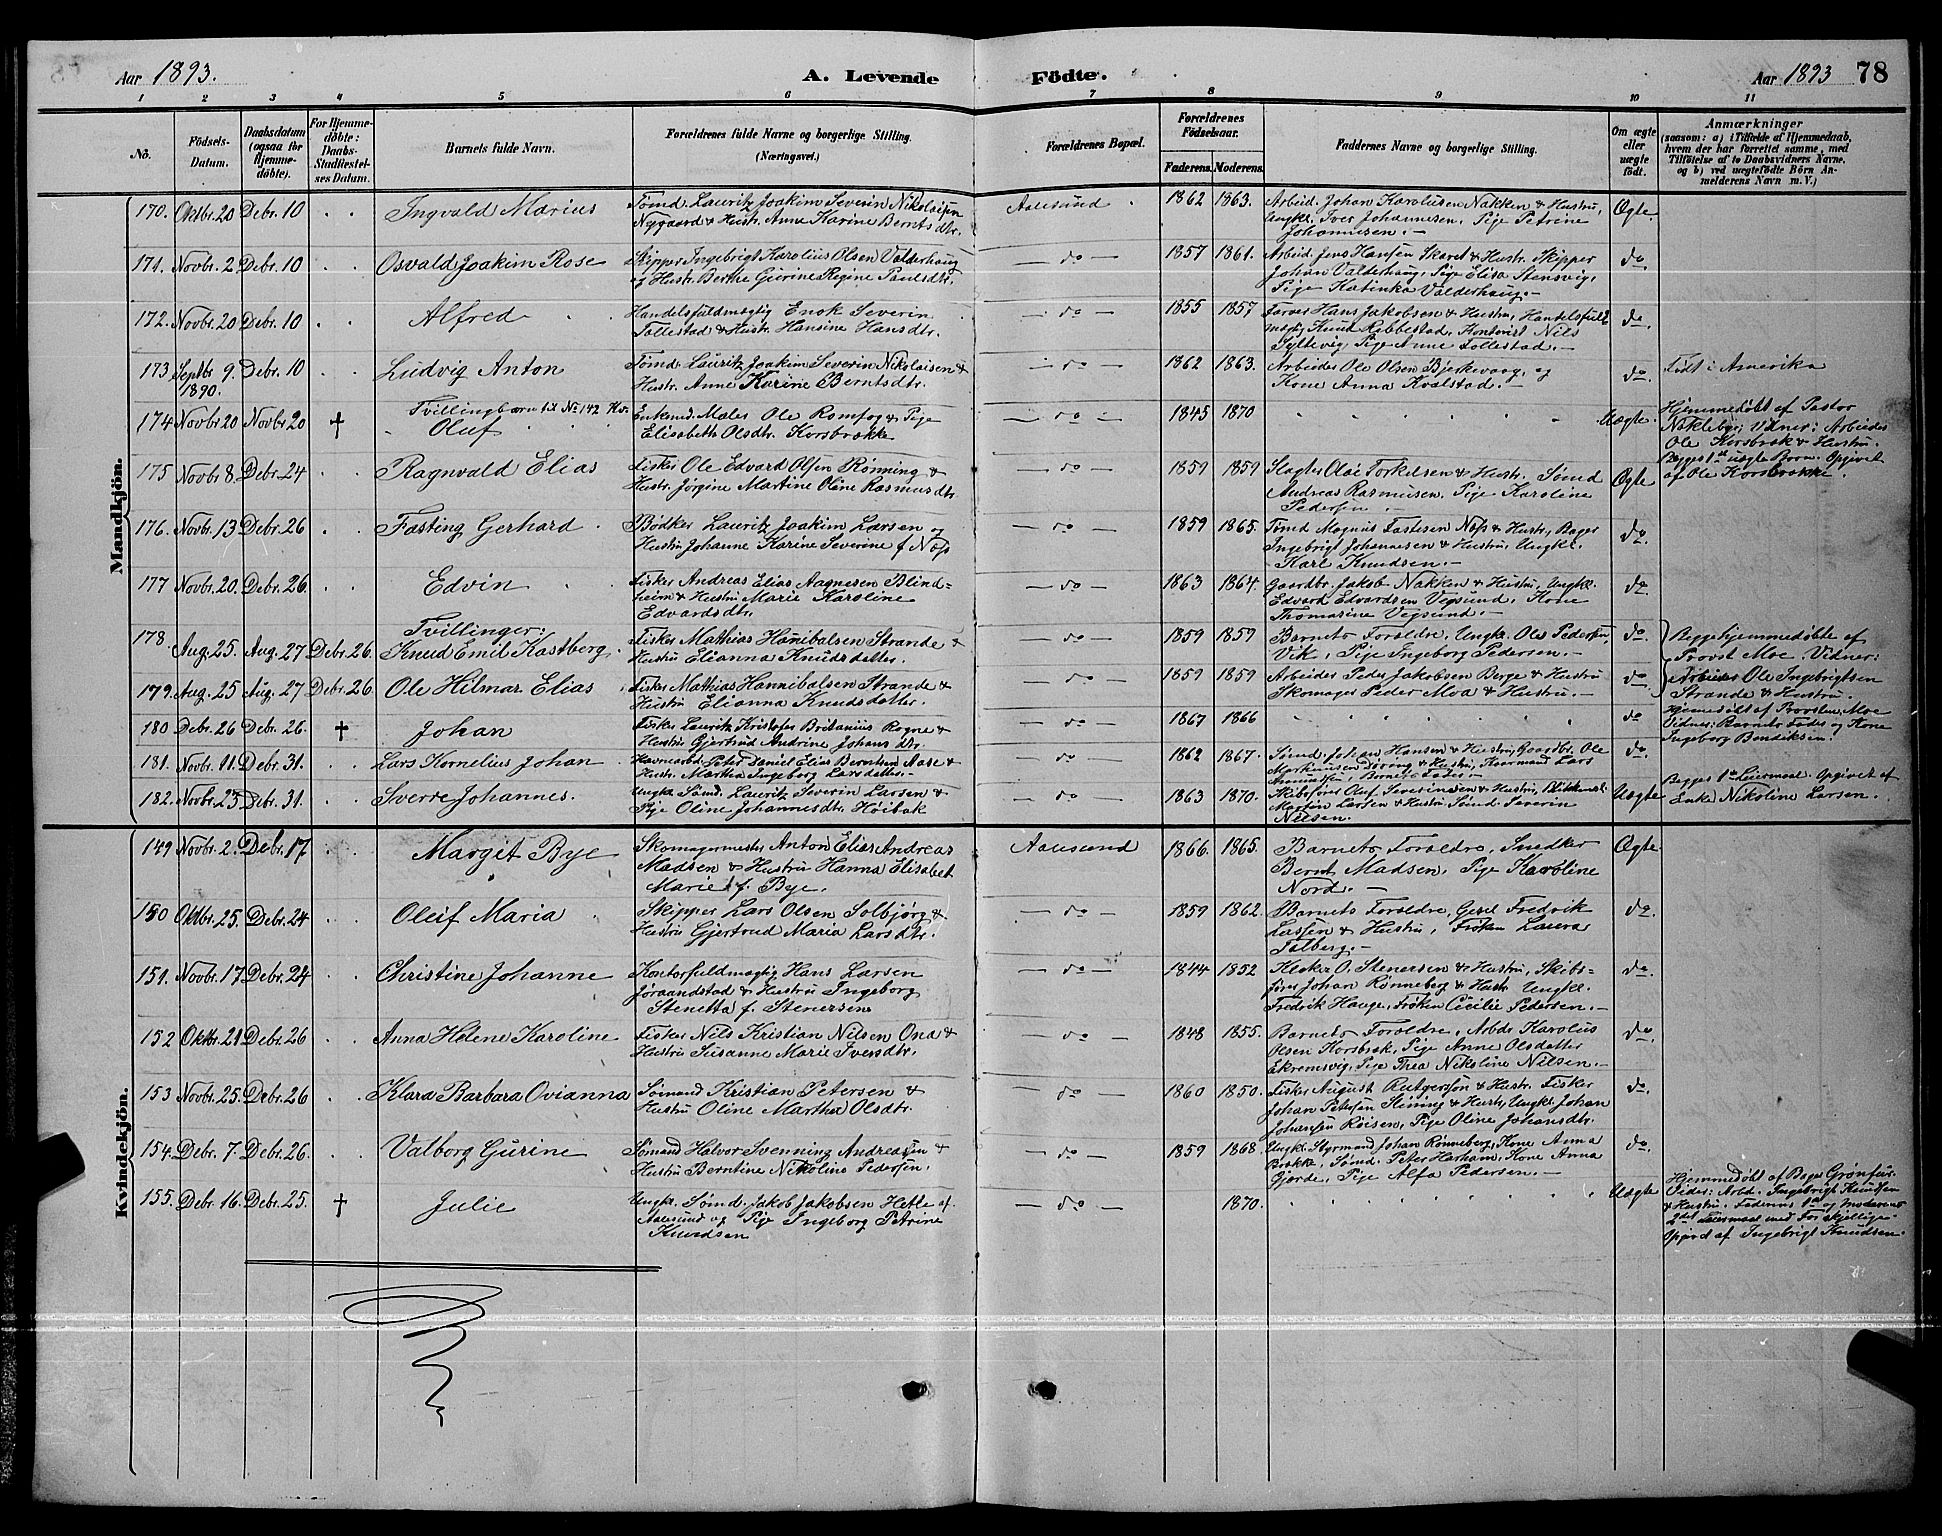 Aar 1893.
A. Levende Födte.
Aar 1893 78
1 2 3 4 5 6 7 8 9 10 11
No.
Födsels-
Datum.
Daabsdatum
(ogsaa for
Hjemme-
döbte).
For Hjemme-
döbte:
Daabs-
Stadfæstel-
ses Datum.
Barnets fulde Navn.
Forældrenes fulde Navne og borgerlige Stilling.
(Næringsvei.)
Forældrenes Bopæl.
Forældrenes
Födselsaar.
Faderens. Moderens.
Faddernes Navne og borgerlige Stilling.
Om ægte
eller
uægte
födt.
Anmærkninger
(saasom: a) i Tilfælde af Hjemmedaab,
hvem der har forrettet samme, med
Tilföielse af to Daabsvidners Navne,
og b) ved uægtefödte Börn An-
melderens Navn m. V.)
Mandkjön.
170. Oktbr. 20 Debr. 10 Ingvald Marius
Tömd. Lauritz Joakim Severin Nikolaisen
Nygaard & Hustr. Anna Karine Berntsdtr.
Aalesund 1862 1863.
Arbeid. Johan Karolusen Nakken & Hustru,
Ungkl. Iver Johannesen, Pige Petrine
Johannesen. -
Ægte
171. Novbr. 2. Debr. 10 Osvald Joakim Rose
Skipper Ingebrigt Karolius Olsen Valderhaug
og Hustr. Berthe Gurine Regine Paulsdtr.
do 1857 1861.
Arbeid. Jens Hansen Skaret & Hustr. Skipper
Johan Valderhaug, Pige Elisa Stensvig,
Pige Katinka Valderhaug. -
do
172. Novbr. 20 Debr. 10 Alfred
Handelsfuldmægtig Enok Severin
Tollestad & Hustr. Hansine Hansdtr.
do 1855 1857
Farver Hans Jakobsen & Hustru, Handelsfuld-
mægtig Knud Rabbestad, Kontorist Nils
Syltevig, Pige Anne Tollestad. -
do.
173 Septbr 9. Debr. 10 Ludvig Anton
1890.
Tömd. Lauritz Joakim Severin Nikolaisen &
Hustr. Anne Karine Berntsdtr.
do 1862 1863.
Arbeider Ole Olsen Bjerkevaag, og
Kone Anna Kvalstad. -
do. Födt i Amerika
174 Novbr 20 Novbr 20 † Tvillingbarn til No 142 Kv.
Oluf
Enkemd. Maler Ole Romfog & Pige
Elisabeth Olsdtr. Korsbrække
do 1845 1870 Uægte.
Hjemmedöbt af Pastor
Nökleby; Vidner: Arbeider
Ole Korsbrek & Hustru.
Begges 1ste uægte Barn. Opgivet
af Ole Korsbrække.
175 Novbr 8. Debr. 24 Ragnvald Elias
Fisker Ole Edvard Olsen Rönning &
Hustr. Jörgine Martine Oline Rasmusdtr.
do 1859 1859
Slagter Olai Torkelsen & Hustr. Sömd
Andreas Rasmusen, Pige Karoline
Pedersen.
Ægte
176. Novbr. 13 Debr. 26 Fasting Gerhard
Bödker Lauritz Joakim Larsen og
Hustru Johanne Karine Severine f. Næss
do 1859 1865.
Tömd Magnus Fastesen Næss & Hustr, Bager
Ingebrigt Johannesen & Hustru, Ungkl.
Karl Knudsen. -
do.
177 Novbr. 20. Debr. 26. Edvin
Fisker Andreas Elias Aagnesen Blind-
heim & Hustru Marie Karoline
Edvardsdtr.
do 1863 1864.
Gaardbr. Jakob Nakken & Hustru, Ungkl.
Edvard Edvardsen Vegsund, Kone
Thomasine Vegsund. -
do
178. Aug. 25. Aug. 27 Debr. 26. Tvillinger:
Knud Emil Kastberg
Fisker Mathias Hanibalsen Strande &
Hustru Elianna Knudsdatter.
do 1859 1859
Barnets Forældre, Ungkl. Ole Pedersen
Vik, Pige Ingeborg Pedersen. -
do.
Begge hjemmedöbte af
Provst Moe. Vidner:
Arbeider Ole Ingebrigtsen
Strande & Hustru.
179. Aug. 25 Aug. 27 Debr. 26 Ole Hilmar Elias
Fisker Mathias Hannibalsen Strande &
Hustru Elianna Knudsdatter.
do 1859 1859
Arbeider Peder Jakobsen Berge & Hustru
Skomager Peder Moa & Hustru. -
do
180 Debr. 26 Debr. 26. † Johan
Fisker Lauritz Kristofer Britanius Rogne &
Hustru Gjertrud Andrine Johansdtr.
do 1867 1866 do
Hjemmedöbt af Provsten Moe
Vidner: Barnets Fader og Kone
Ingeborg Bendiksen.
181. Novbr. 11. Debr. 31. Lars Kornelius Johan
Havnearbd. Peter Daniel Elias Berntsen Aase &
Hustr. Martha Ingeborg Larsdatter. -
do 1862 1867.
Sömd. Johan Hansen & Hustru, Gaardbr. Ole
Markussen & Hustru, Lars
Barnets Fader. -
do.
182. Novbr. 23 Debr. 31. Sverre Johannes.
Ungkl. Sömd. Lauritz Severin Larsen &
Pige Oline Johannesdtr. Höibak
do 1863 1870.
Skibsförer Oluf Severinsen & Hustru,
Martin Larsen & Hustru Sömd. Severin
Nilsen.
Uægte
Begges 1ste Leiermaal. Opgivet af
Enke Nikoline Larsen.
Kvindekjön.
149 Novbr. 2. Debr. 17 Margit Bye
Skomagermester Anton Elias Andreas
Madsen & Hustru Hanna Elisabet
Marie f. Bye.
Aalesund 1866. 1865.
Barnets Forældre, Snedker
Bernt Madsen, Pige Karoline
Nord. -
Ægte
150 Oktbr. 25. Debr. 24 Oleif Maria
Skipper Lars Olsen Solbjörg &
Hustru Gjertrud Maria Larsdtr.
do 1859 1862.
Barnets Forældre, Gesel Fredrik
Lassen & Hustru, Fröken Laura
Talberg. -
do.
151. Novbr. 17 Debr. 24 Christine Johanne
Kontorfuldmægtig Hans Larsen
Jöraandstad & Hustru Ingeborg
Stenetta f. Stenersen
do 1844 1852
Klokker O. Stenersen & Hustru, Skibs-
förer Johan Rönneberg & Hustr. Ungkl.
Fredrik Hauge, Fröken Cecilie Pedersen. -
do.
152 Oktbr. 21 Debr. 26 Anna Helene Karoline
Fisker Nils Kristian Nilsen Ona &
Hustru Susanne Marie Iversdtr.
do 1848 1855.
Barnets Forældre, Arbdr. Karolius
Olsen Korsbrek, Pige Anne Olsdatter
Ekremsvig, Pige Thea Nikoline Nilsen. -
do.
153 Novbr. 25. Debr. 26 Klara Barbara Ovianna
Sömand Kristian Petersen &
Hustru Oline Martha Olsdtr.
do 1860 1850.
Fisker August Rutgersen & Hustr. Fisker
Johan Petersen Slining & Hustr, Ungkl. Johan
Johansen Roisen, Pige Oline Johansdtr.
do.
154. Debr. 7. Debr. 26. Valborg Gurine
Sömand Halvor Svenning Andreassen &
Hustru Berntine Nikoline Pedersen.
do 1859 1868.
Ungkl. Styrmand Johan Rönneberg, Kone Anna
Brække, Sömd. Peter Harham, Kone Anna
Gjørde, Pige Alfa Pedersen. -
do
155. Debr. 16. Debr. 25. † Julie
Ungkl. Sömd. Jakob Jakobsen Hetle af
Aalesund og Pige Ingeborg Petrine
Knudsen
do 1870. Uægte
Hjemmedöbt af Bager Grönfur.
Vidner: Arbd. Ingebrigt Knudsen
& Hustru. Faderens 1ste og Moderens
2det Leiermaal med Forskjellige.
Opgivet af Ingebrigt Knudsen.